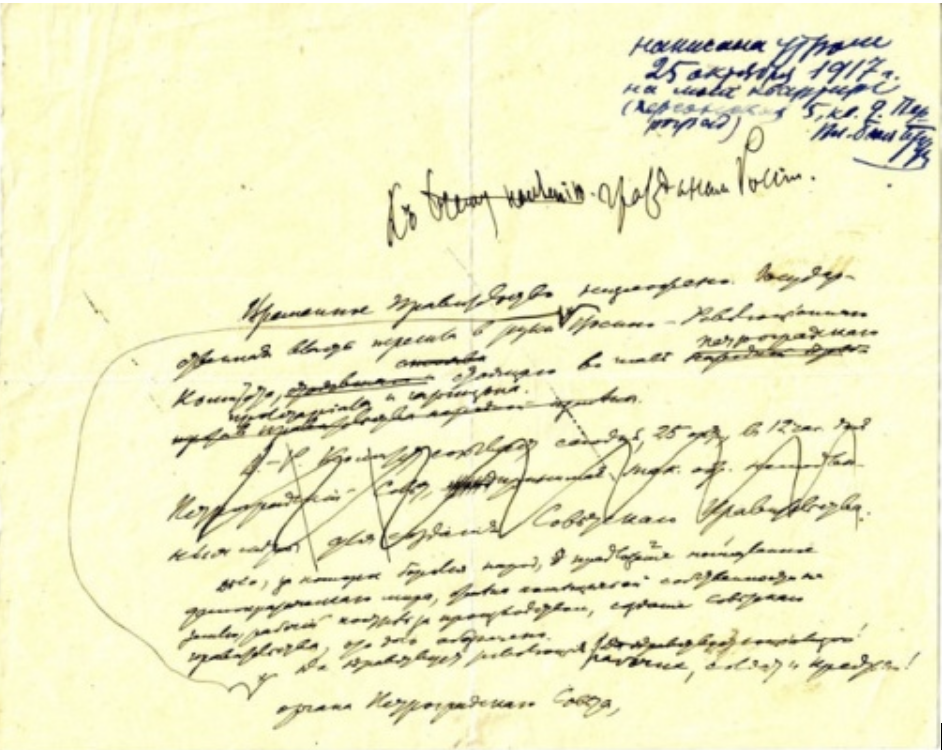 написана утром
25 октября 1917 г.
на моей квартире
(Херсонская 5, кв. 9. Пет-
роград) Вл. Бонч-Бруе
вич
Къ всему населению. гражданам России.
Временное Правительство низложено. Государ-
ственная власть перешла в руки Военно-Революционного
петроградского
Комитета, стоящего во главе
пролетариата и гарнизона.
В.-Р. Комитет созывает сегодня, 25 окт. в 12 час. дня
Петроградский Совет, принимая, так. обр. немедлен-
ные меры для создания Советского Правительства.
Дело, за которое боролся народ, предложение немедленное
демократического мира, отмена помещичьей собственности на
землю, рабочий контроль за производством, создание Советского
правительства, это дело обеспечено.
Да здравствует революция рабочих, солдат и крестьян!
органа Петроградского Совета,